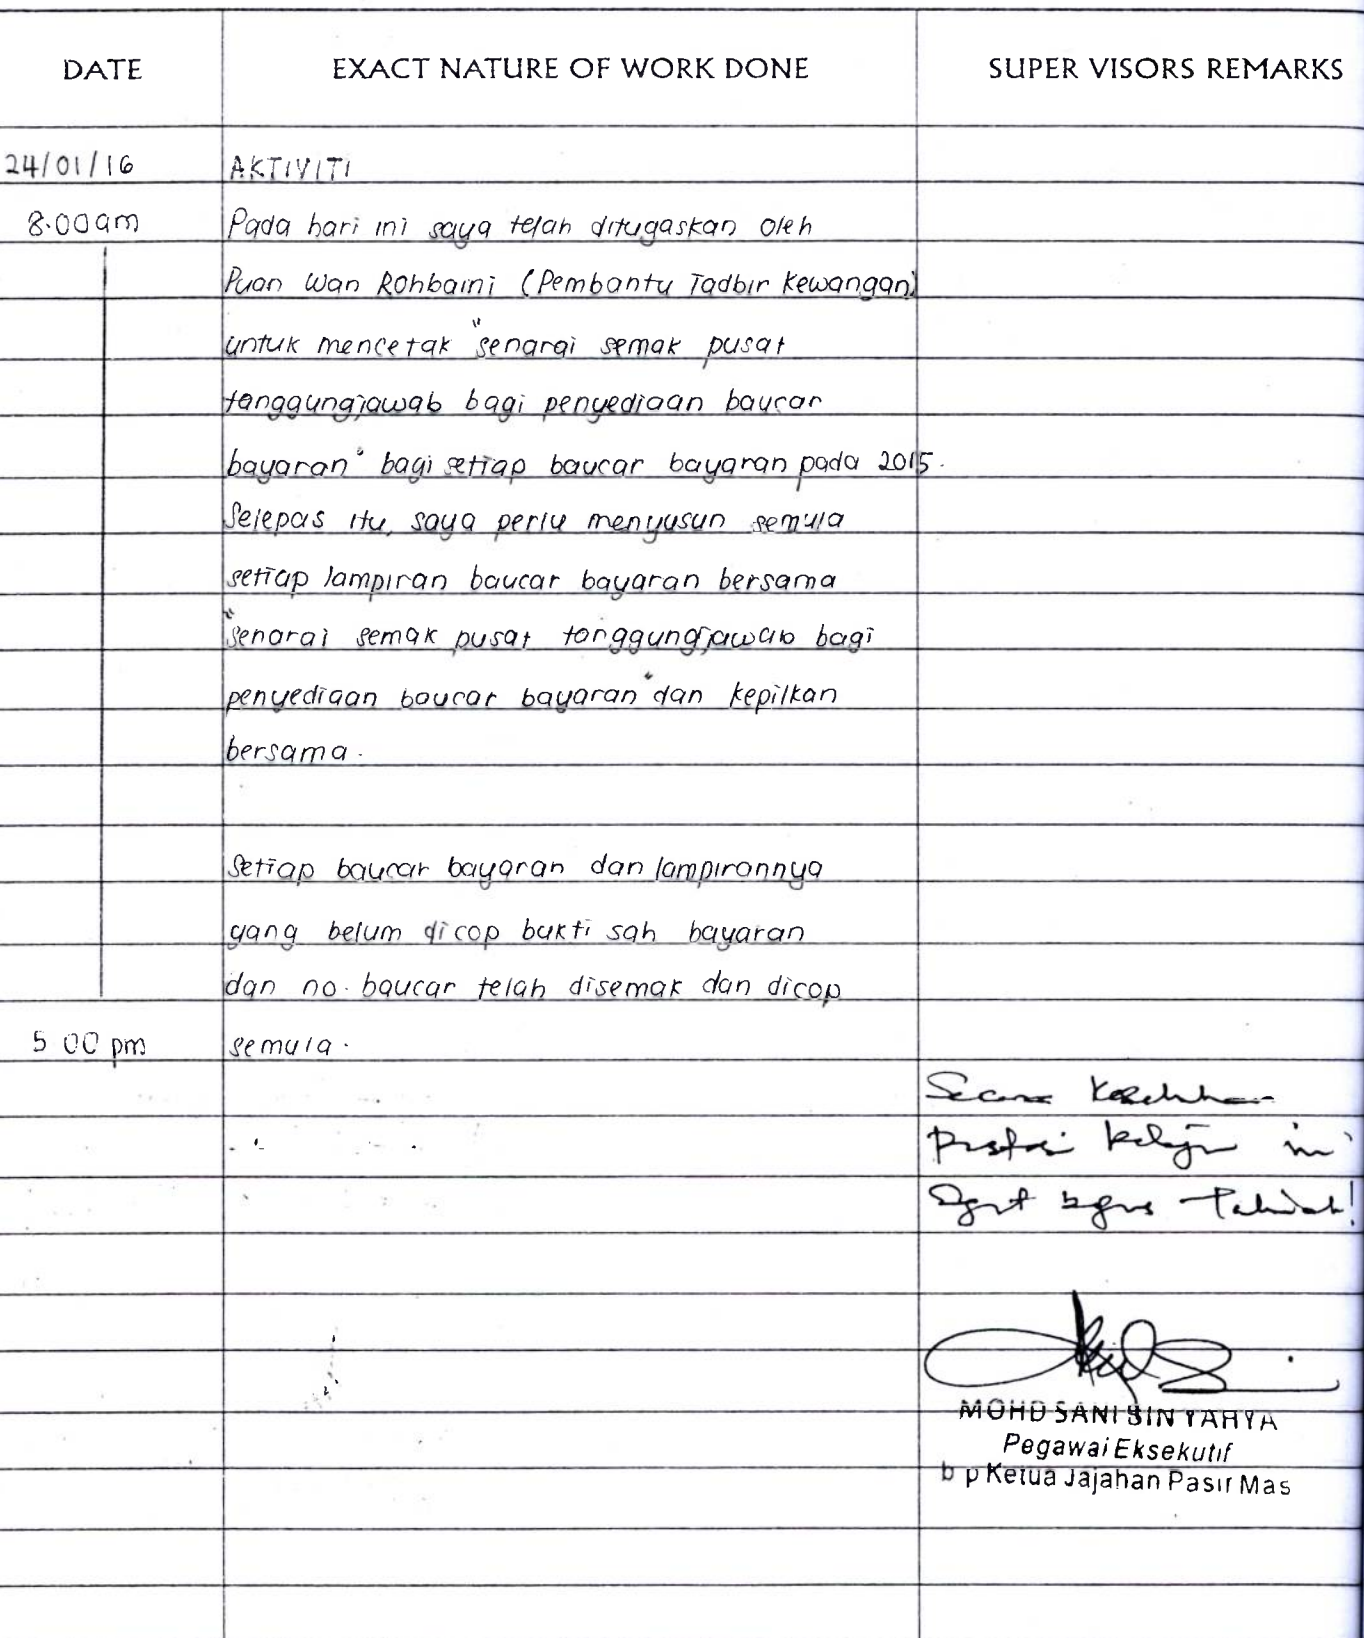 DATE EXACT NATURE OF WORK DONE SUPER VISORS REMARKS
24/01/16 AKTIVITI
8.00am Pada hari ini saya telah ditugaskan oleh
Puan Wan Rohbaini (Pembantu Tadbir Kewangan)
untuk mencetak "senarai semak pusat
tanggungjawab bagi penyediaan baucar
bayaran" bagi setiap baucar bayaran pada 2015.
Selepas itu, saya perlu menyusun semula
setiap lampiran baucar bayaran bersama
"senarai semak pusat tanggungjawab bagi
penyediaan baucar bayaran" dan kepilkan
bersama.
Setiap baucar bayaran dan lampirannya
yang belum dicop bukti sah bayaran
dan no. baucar telah disemak dan dicop
5.00 pm semula.
Secara keseluruhan
prestasi pelajar ini
sangat bagus Tahniah!
MOHD SANI BIN YAHYA
Pegawai Eksekutif
b p Ketua Jajahan Pasir Mas